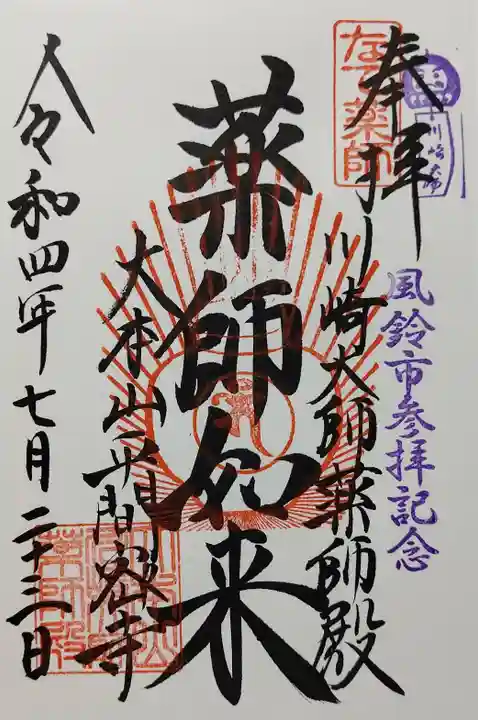 奉拝
なで薬師
川崎大師
風鈴市参拝記念
川崎大師薬師殿
薬師如来
大本山平間寺
令和四年七月二十三日
薬師殿